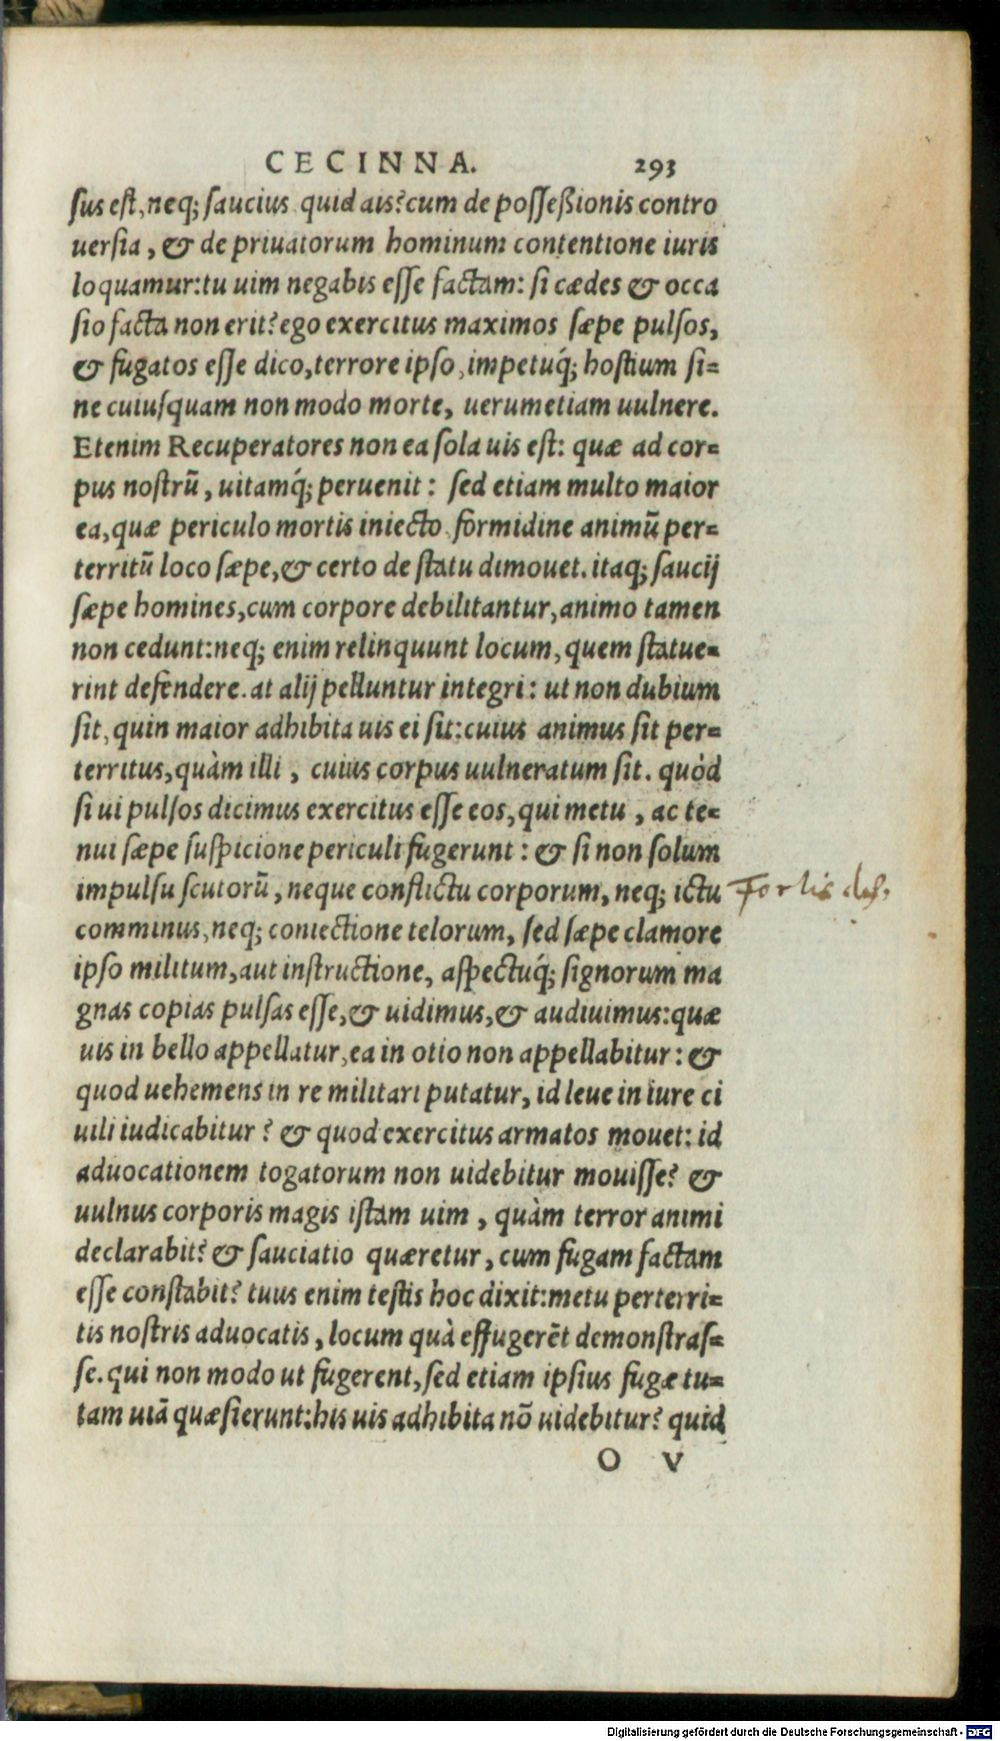 CECINNA. 293
sus est, neq; saucius quid ais? cum de possessionis contro
uersia, & de priuatorum hominum contentione iuris
loquamur: tu uim negabis esse factam: si cædes & occa
sio facta non erit? ego exercitus maximos sæpe pulsos,
& fugatos esse dico, terrore ipso, impetuq́; hostium si-
ne cuiusquam non modo morte, uerumetiam uulnere.
Etenim Recuperatores non ea sola uis est: quæ ad cor-
pus nostrũ, uitamq́; peruenit: sed etiam multo maior
ea, quæ periculo mortis iniecto formidine animũ per-
territũ loco sæpe, & certo de statu dimouet. itaq; saucij
sæpe homines, cum corpore debilitantur, animo tamen
non cedunt: neq; enim relinquunt locum, quem statue-
rint defendere. at alij pelluntur integri: ut non dubium
sit, quin maior adhibita uis ei sit: cuius animus sit per-
territus, quàm illi, cuius corpus uulneratum sit. quòd
si ui pulsos dicimus exercitus esse eos, qui metu, ac te-
nui sæpe suspicione periculi fugerunt: & si non solum
impulsu scutorũ, neque conflictu corporum, neq; ictu
comminus, neq; coniectione telorum, sed sæpe clamore
ipso militum, aut instructione, aspectuq́; signorum ma
gnas copias pulsas esse, & uidimus, & audiuimus: quæ
uis in bello appellatur, ea in otio non appellabitur: &
quod uehemens in re militari putatur, id leue in iure ci
uili iudicabitur? & quod exercitus armatos mouet: id
aduocationem togatorum non uidebitur mouisse? &
uulnus corporis magis istam uim, quàm terror animi
declarabit? & sauciatio quæretur, cum fugam factam
esse constabit? tuus enim testis hoc dixit: metu perterri-
tis nostris aduocatis, locum quà effugerẽt demonstras-
se. qui non modo ut fugerent, sed etiam ipsius fugæ tu-
tam uiã quæsierunt: his uis adhibita nõ uidebitur? quid
O V
Digitalisierung gefördert durch die Deutsche Forschungsgemeinschaft - DFG